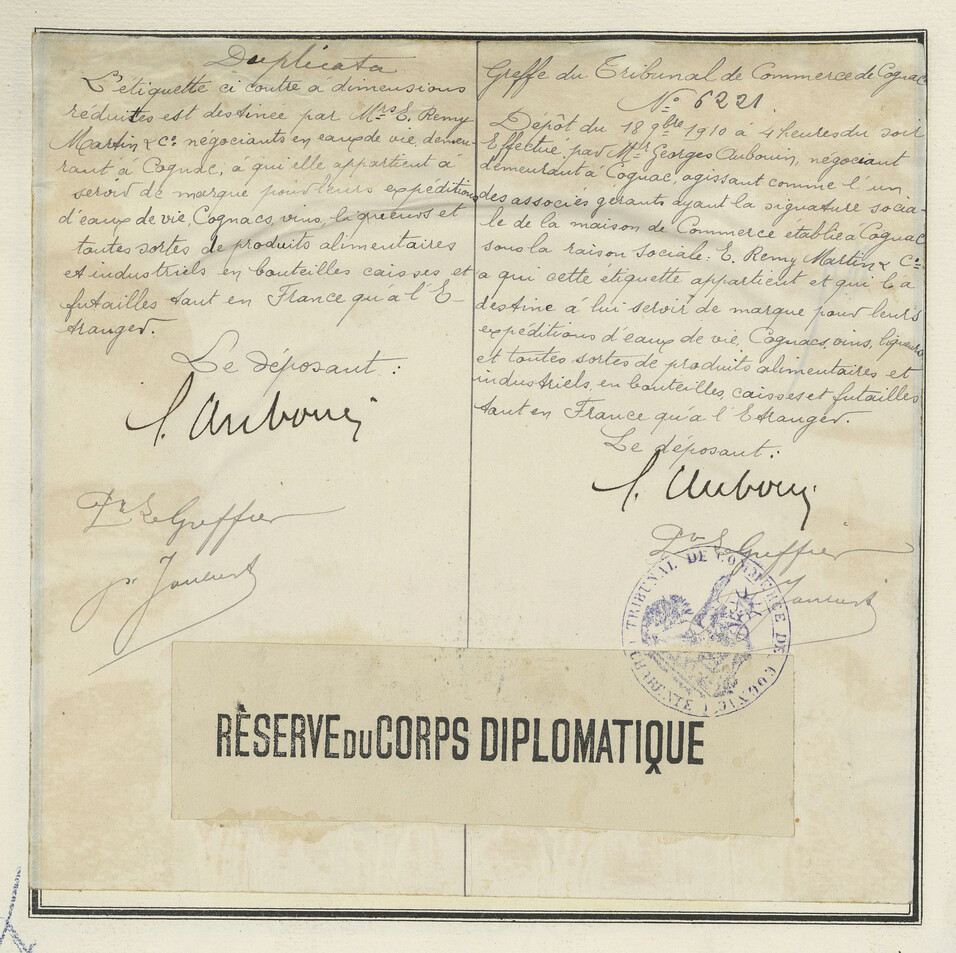 Duplicata
L'étiquette ci contre à dimensions
réduites est destinée par Mrs E. Remy
Martin & Co négociants en eaux de vie, demeu-
rant à Cognac, à qui elle appartient à
servir de marque pour leurs expéditions
d'eaux de vie, Cognacs, vins, liqueurs et
toutes sortes de produits alimentaires
et industriels en bouteilles caisses et
futailles tant en France qu'à l'E-
tranger.
Le déposant :
G. Aubouin
Pr Le Greffier
Greffe du Tribunal de Commerce de Cognac
No 6221.
Dépôt du 18 9bre 1910 à 4 heures du soir
Effectué par Mr Georges Aubouin, négociant
demeurant à Cognac, agissant comme l'un
des associés gérants ayant la signature socia-
le de la maison de Commerce établie à Cognac
sous la raison sociale: E. Remy Martin & Co
a qui cette étiquette appartient et qui l'a
destine à lui servir de marque pour leurs
expéditions d'eaux de vie, Cognacs, vins, liqueurs
et toutes sortes de produits alimentaires et
industriels, en bouteilles, caisses et futailles
tant en France qu'à l'Etranger.
Le déposant :
G. Aubouin
Pr Le Greffier
TRIBUNAL DE COMMERCE DE COGNAC
(CHARENTE)
RÈSERVE DU CORPS DIPLOMATIQUE